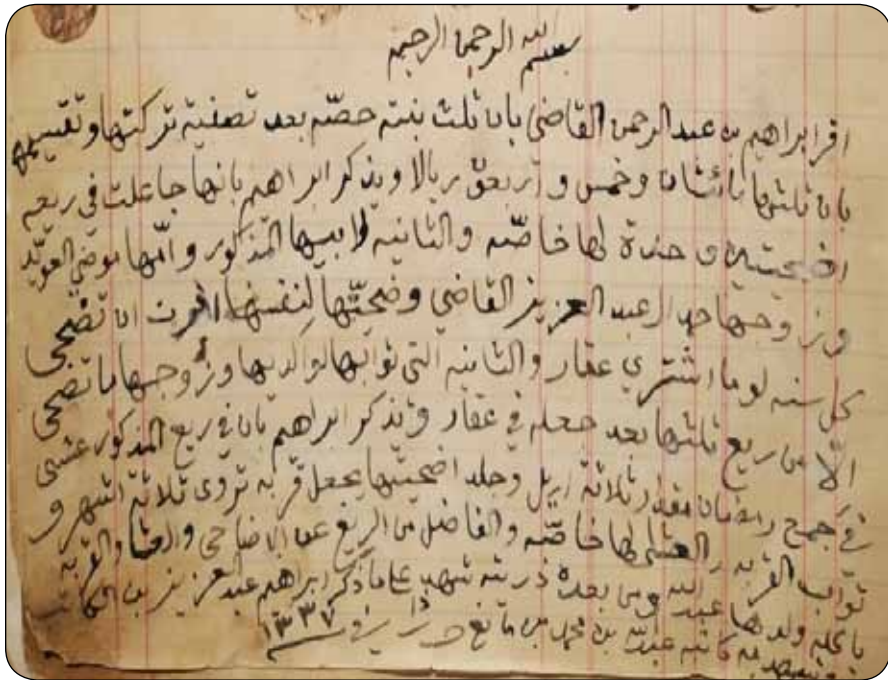 بسم الله الرحمن الرحيم
اقر ابراهيم بن عبد الرحمن القاضي بان ثلث بنته حصه بعد تصفية تركتها وتقسيمها
بان ثلثها مائتان وخمس واربعون ريالا ويذكر ابراهيم بانها جاعلت في ريعه
اضحيتين وحدة لها خاصه والثانيه لابيها المذكور وامها موضي العويد
وزوجها حمد ال عبد العزيز القاضي وضحيتها لنفسها اقرت ان تضحى
كل سنه لو ما اشتري عقار والثانيه التي ثوابها لوالديها وزوجها ما تضحى
الا من ريع ثلثها بعد جعله في عقار ويذكر ابراهيم بان في ريع المذكور عشى
في جمع رمضان مقدار ثلاثة اريل وجلد اضحيتها يجعل قربه تروى ثلاثة اشهر و
ثواب القربه والعشا لها خاصه والفاضل من الريع عن الاضاحي والعشا والقربه
ياكله ولدها عبد الله ومن بعده ذريته شهد على ما ذكر ابراهيم عبد العزيز بن
وشهد به كاتبه عبد الله بن محمد بن مانع ١٣٣٧